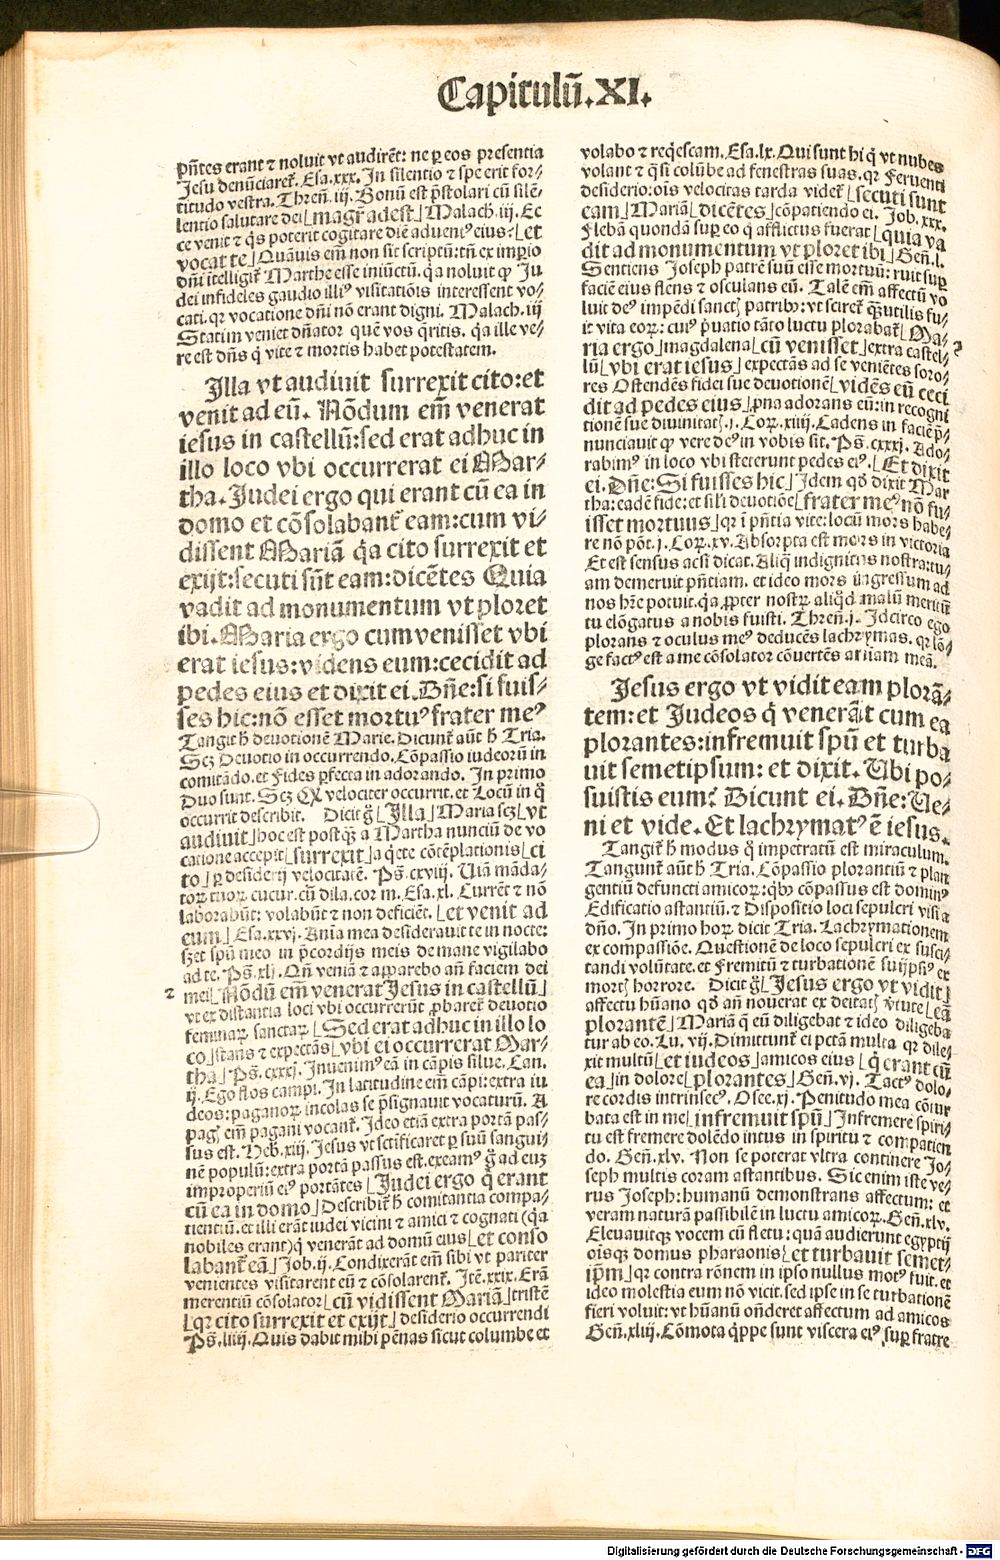 Capitulū.XI.
pñtes erant ⁊ noluit vt audirēt: ne ꝑ eos presentia
Jesu denūciaret᷑. Esa.xxx. In silentio ⁊ spe erit for-
titudo vestra. Threñ. iij. Bonū est p̄stolari cū silē-
lentio salutare dei [magr̄ adest] Malach. iij. Ec
ce venit ⁊ q̄s poterit cogitare diē aduentꝰ eius: [et
vocat te] Quāuis em̄ non sit scriptū: tn̄ ex imp̄io
dn̄i ītelligit᷑ Marthe esse iniūctū. q̄a noluit ꝙ Ju
dei infideles gaudio illiꝰ visitatiōis interessent vo-
cati. qr vocatione dn̄i nō erant digni. Malach. iij
Statim veniet dn̄ator quē vos q̄ritis. q̄a ille ve-
re est dn̄s q̄ vite ⁊ mortis habet potestatem.
Illa vt audiuit surrexit cito: et
venit ad eū. Nōdum em̄ venerat
iesus in castellū: sed erat adhuc in
illo loco vbi occurrerat ei Mar-
tha. Judei ergo qui erant cū ea in
domo et cōsolabant᷑ eam: cum vi-
dissent Mariā q̄a cito surrexit et
exijt: secuti sūt eam: dicētes Quia
vadit ad monumentum vt ploret
ibi. Maria ergo cum venisset vbi
erat iesus: videns eum: cecidit ad
pedes eius et dixit ei. Dn̄e: si fuis-
ses hic: nō esset mortuꝰ frater meꝰ
Tangit h̄ deuotionē Marie. Dicunt᷑ aūt h̄ Tria.
Scꝫ Deuotio in occurrendo. Cōpassio iudeorū in
comitādo. et Fides ꝑfecta in adorando. In primo
Duo sunt. Scꝫ Qꝫ velociter occurrit. et Locū in q̄
occurrit describit. Dicit g̊ [Illa] Maria scꝫ [vt
audiuit] hoc est postqꝫ a Martha nunciū de vo
catione accepit [surrexit] a q̄ete cōtēplationis [ci
to] ꝑ desiderij velocitatē. Ps̄. cxviij. Uiā māda-
toꝝ tuoꝝ cucur. cū dila. cor m. Esa. xl. Currēt ⁊ nō
laborabūt: volabūt ⁊ non deficiēt. [et venit ad
eum] Esa. xxvj. Anīa mea desiderauit te in nocte:
sꝫ et spū meo in p̄cordijs meis de mane vigilabo
ad te. Ps̄. xlj. Qn̄ veniā ⁊ apparebo an̄ faciem dei
mei [Nōdū em̄ venerat Jesus in castellū]
vt ex distantia loci vbi occurrerūt ꝓbaret᷑ deuotio
feminaꝝ sanctaꝝ [Sed erat adhuc in illo lo
co] stans ⁊ expectās [vbi ei occurrerat Mar-
tha] Ps̄. cxxxj. Inuenimꝰ eā in cāpis silue. Can.
ij. Ego flos campi. In latitudine em̄ cāpi: extra iu
deos: paganoꝝ incolas se p̄signauit vocaturū. A
pagꝭ em̄ pagani vocant᷑. Ideo etiā extra portā pas-
sus est. Heb. xiij. Jesus vt sctificaret ꝑ suū sangui-
nē populū: extra portā passus est. exeamꝰ g̊ ad eūꝫ
improperiū eiꝰ portātes [Judei ergo q̄ erant
cū ea in domo] Describit᷑ h̄ comitantia compa-
tientiū. et illi erāt iudei vicini ⁊ amici ⁊ cognati (q̄a
nobiles erant) q̄ venerāt ad domū eius [et conso
labant᷑ eā] Job. ij. Condixerāt em̄ sibi vt pariter
venientes visitarent eū ⁊ cōsolarent᷑. Itē. xxix. Erā
merentiū cōsolator [cū vidissent Mariā] tristē
[qr cito surrexit et exijt] desiderio occurrendi
Ps̄. liiij. Quis dabit mihi pēnas sicut columbe et
volabo ⁊ reqꝭescam. Esa. lx. Qui sunt hi q̇ vt nubes
volant ⁊ q̄si colūbe ad fenestras suas. qr Feruenti
desiderio: oīs velocitas tarda videt᷑ [secuti sunt
eam] Mariā [dicētes] cōpatiendo ei. Job. xxx.
Flebā quondā suꝑ eo q̇ afflictus fuerat [quia va
dit ad monumentum vt ploret ibi] Gen̄. l.
Sentiens Joseph patrē suū esse mortuū: ruit suꝑ
faciē eius flens ⁊ osculans eū. Talē em̄ affectū vo
luit deꝰ impēdi sanctꝭ patribꝫ: vt sciret᷑ qꝫ vtilis fu-
it vita eoꝝ: cuiꝰ p̄uatio tāto luctu plorabat᷑ [Ma-
ria ergo] magdalena [cū venisset] extra castel-
lū [vbi erat iesus] expectās ad se veniētes soro-
res Ostendēs fidei sue deuotionē [vidēs eū ceci
dit ad pedes eius] ꝓna adorans eū: in recogni
tionē sue diuinitatꝭ. j. Coꝝ. xiiij. Cadens in faciē p̄-
nunciauit ꝙ vere deꝰ in vobis sit. Ps̄. cxxxj. Ado-
rabimꝰ in loco vbi steterunt pedes eiꝰ. [Et dixit
ei. Dn̄e: Si fuisses hic] Idem qd̄ dixit Mar
tha: eadē fide: et sil̄i deuotiōe [frater meꝰ nō fu-
isset mortuus] qr ī pn̄tia vite: locū mors habe-
re nō pōt. j. Coꝝ. xv. Absorpta est mors in victoria
Et est sensus acsi dicat. Aliq̄ indignitas nostra: tu-
am demeruit pn̄tiam. et ideo mors īngressum ad
nos hr̄e potuit. q̄a ꝓpter nostꝝ aliqd̄ malū meritū
tu elōgatus a nobis fuisti. Thren̄. j. Idcirco ego
plorans ⁊ oculus meꝰ deducēs lachrymas. qr lō-
ge factꝰ est a me cōsolator cōuertēs aīam meā.
Jesus ergo vt vidit eam plorā-
tem: et Judeos q̇ venerāt cum ea
plorantes: infremuit spū et turba
uit semetipsum: et dixit. Ubi po-
suistis eum? Dicunt ei. Dn̄e: Ue-
ni et vide. Et lachrymatꝰ ē iesus.
Tangit᷑ h̄ modus q̇ impetratū est miraculum.
Tangunt᷑ aūt h̄ Tria. Cōpassio plorantiū ⁊ plan
gentiū defuncti amicoꝝ: qͥbꝫ cōpassus est dominꝰ
Edificatio astantiū. ⁊ Dispositio loci sepulcri visi a
dn̄o. In primo hoꝝ dicit Tria. Lachrymationem
ex compassiōe. Questionē de loco sepulcri ex susci-
tandi volūtate. et Fremitū ⁊ turbationē suijpsiꝰ ex
mortꝭ horrore. Dicit g̊ [Jesus ergo vt vidit]
affectu hūano qd̄ an̄ nouerat ex deitatꝭ v̄tute [eā
plorantē] Mariā q̄ eū diligebat ⁊ ideo diligeba
tur ab eo. Lu. vij. Dimittunt᷑ ei pctā multa qr dile-
xit multū [et iudeos] amicos eius [q̇ erant cū
ea] in dolore [plorantes] Gen̄. vj. Tactꝰ dolo-
re cordis intrinsecꝰ. Osee. xj. Penitudo mea cōtur
bata est in me [infremuit spū] Infremere spiri-
tu est fremere dolēdo intus in spiritu ⁊ compatien
do. Gen̄. xlv. Non se poterat vltra continere Jo-
seph multis coram astantibus. Sic enim iste ve-
rus Joseph: humanū demonstrans affectum: et
veram naturā passibilē in luctu amicoꝝ. Gen̄. xlv.
Eleuauitqꝫ vocem cū fletu: quā audierunt egyptij
oīsqꝫ domus pharaonis [et turbauit semet-
ip̄m] qr contra rōnem in ipso nullus motꝰ fuit. et
ideo molestia eum nō vicit. sed ipse in se turbationē
fieri voluit: vt hūanū on̄deret affectum ad amicos
Gen̄. xliij. Cōmota q̄ppe sunt viscera eiꝰ suꝑ fratre
Digitalisierung gefördert durch die Deutsche Forschungsgemeinschaft - DFG